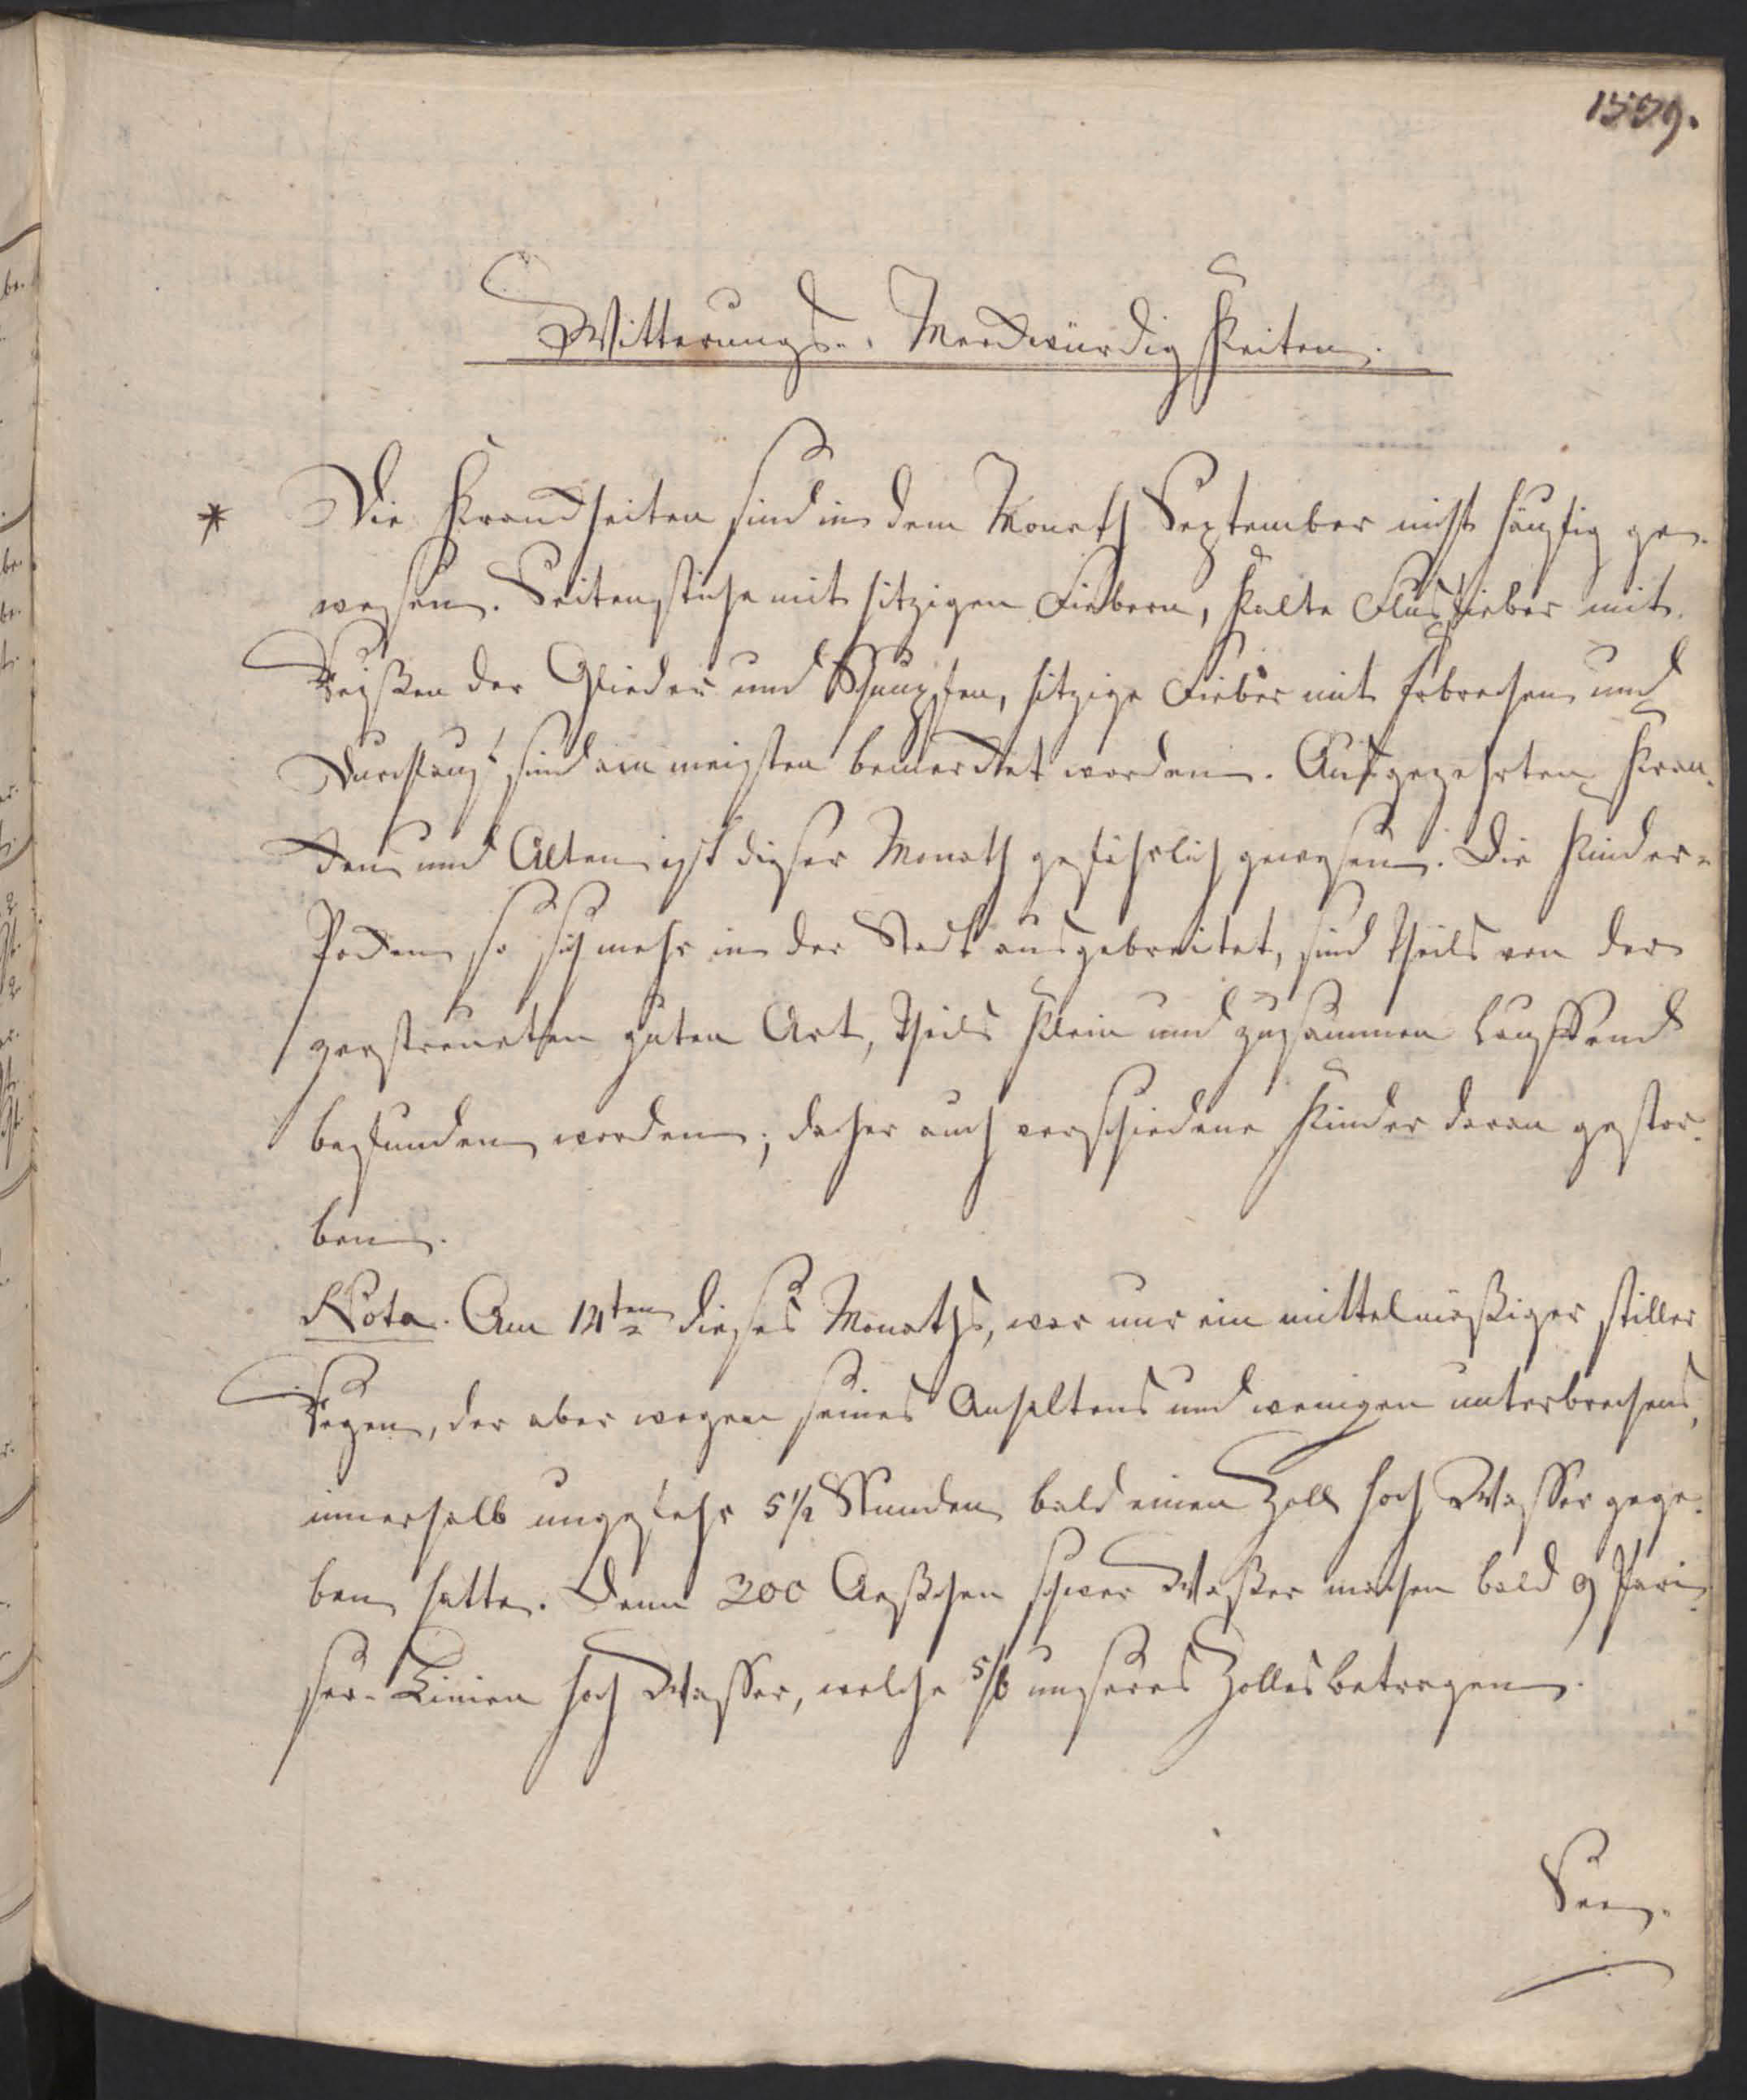 1539.
Witterungs-Merckwürdigkeiten.
* Die Kranckheiten sind in dem Monath September nicht häuffig ge-
wesen. Seitenstiche mit hitzigen Fiebern, kalte Flusfieber mit
Reißen der Glieder und Schnupfen, hitzige Fieber mit Erbrechen und
Durchlauf sind am meisten bemercket worden. Ausgezehrten Kran-
cken und Alten ist dieser Monath gefährlich gewesen. Die Kinder-
Pocken so sich mehr in der Stadt ausgebreitet, sind theils von der
zerstreueten guten Art, theils klein und zusammen lauffend
befunden worden; daher auch verschiedene Kinder daran gestor-
ben.
Nota. Am 14ten dieses Monaths, war nur ein mittelmäßiger stiller
Regen, der aber wegen seines Anhaltens und wenigen unterbrechens,
innerhalb ungefehr 5 1/2 Stunden bald einen Zoll hoch Wasser gege-
ben hatte. Denn 200 Aeßchen schwer Waßer machen bald 9 Pari-
ser-Linien hoch Wasser, welche 5/6 unseres Zolles betragen.